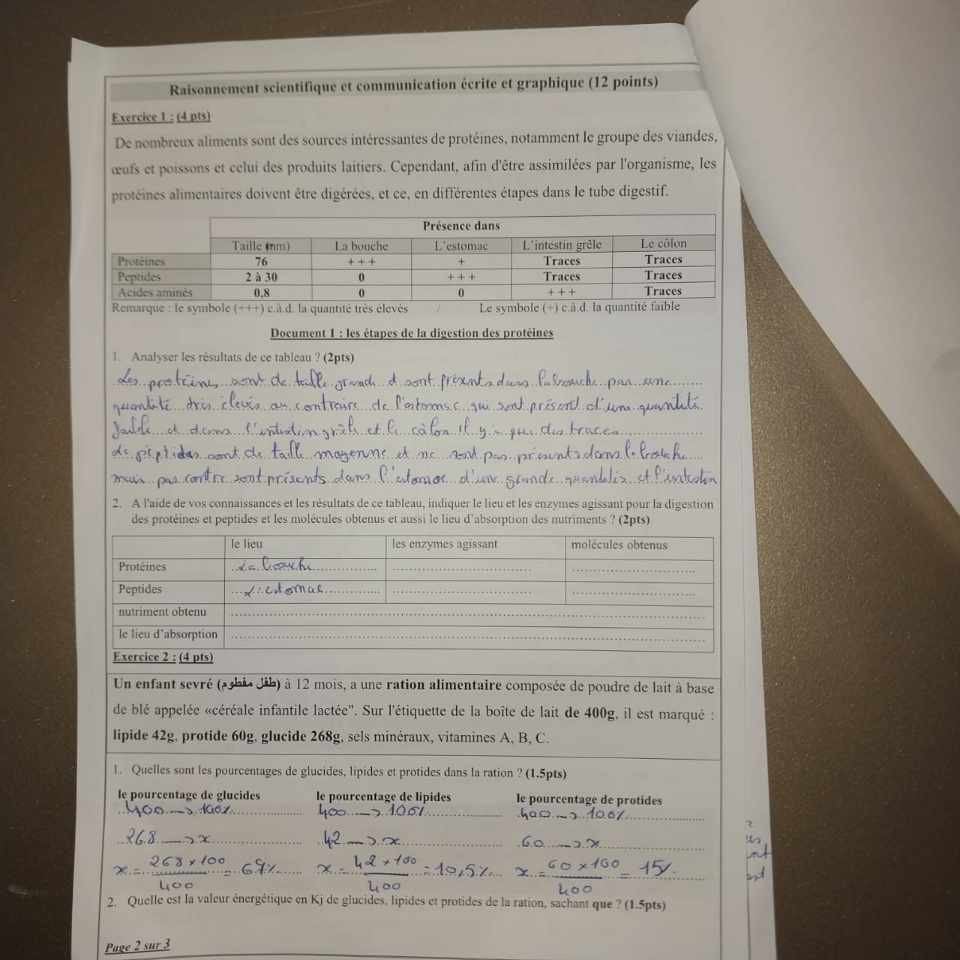 Raisonnement scientifique et communication écrite et graphique (12 points)
Exercice 1 : (4 pts)
De nombreux aliments sont des sources intéressantes de protéines, notamment le groupe des viandes,
œufs et poissons et celui des produits laitiers. Cependant, afin d'être assimilées par l'organisme, les
protéines alimentaires doivent être digérées, et ce, en différentes étapes dans le tube digestif.
Présence dans
Taille (nm) La bouche L'estomac L'intestin grêle Le côlon
Protéines 76 +++ + Traces Traces
Peptides 2 à 30 0 +++ Traces Traces
Acides aminés 0,8 0 0 +++ Traces
Remarque : le symbole (+++) c.à.d. la quantité très élevés / Le symbole (+) c.à.d. la quantité faible
Document 1 : les étapes de la digestion des protéines
1. Analyser les résultats de ce tableau ? (2pts)
Les protéines sont de taille grande et sont présents dans la bouche par une
quantité très élevés au contraire de l'estomac qui sont présent d'une quantité
faible et dans l'intestin grêle et le côlon il y a que des traces
Le peptides sont de taille moyenne et ne sont pas présents dans la bouche
mais par contre sont présents dans l'estomac d'une grande quantités et l'intestin
2. A l'aide de vos connaissances et les résultats de ce tableau, indiquer le lieu et les enzymes agissant pour la digestion
des protéines et peptides et les molécules obtenus et aussi le lieu d'absorption des nutriments ? (2pts)
le lieu les enzymes agissant molécules obtenus
Protéines La bouche
Peptides L'estomac
nutriment obtenu
le lieu d'absorption
Exercice 2 : (4 pts)
Un enfant sevré (طفل مفطوم) à 12 mois, a une ration alimentaire composée de poudre de lait à base
de blé appelée «céréale infantile lactée". Sur l'étiquette de la boîte de lait de 400g, il est marqué :
lipide 42g, protide 60g, glucide 268g, sels minéraux, vitamines A, B, C.
1. Quelles sont les pourcentages de glucides, lipides et protides dans la ration ? (1.5pts)
le pourcentage de glucides le pourcentage de lipides le pourcentage de protides
400 → 100% 400 → 100% 400 → 100%
268 → x 42 → x 60 → x
x = 268 × 100 / 400 = 67% x = 42 × 100 / 400 = 10,5% x = 60 × 100 / 400 = 15%
2. Quelle est la valeur énergétique en Kj de glucides, lipides et protides de la ration, sachant que ? (1.5pts)
Page 2 sur 3